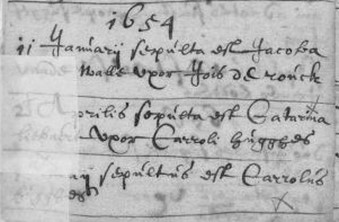 1654
11 Januarij sepulta est Jacoba
Walle uxor Jois de rouck
prilis sepulta est Catarina
uxor Carroli hugghes
aij sepultus est Carrolus